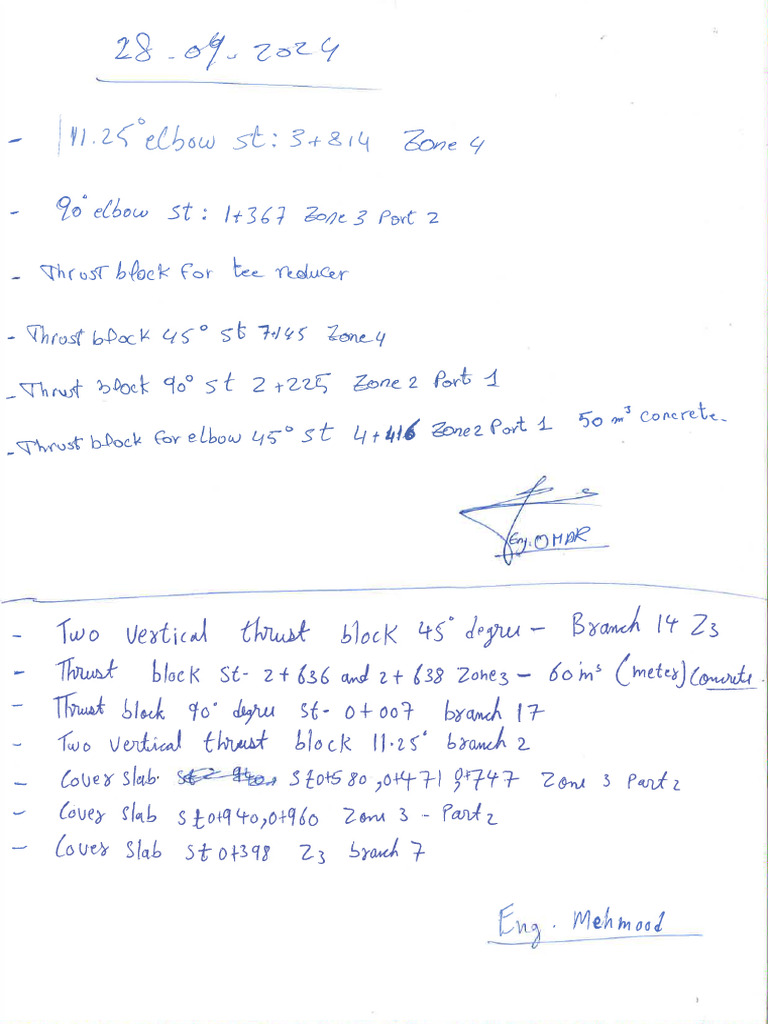 28.09.2024
- 11.25° elbow st: 3+814 Zone 4
- 90° elbow st: 1+367 Zone 3 Part 2
- Thrust block for tee reducer
- Thrust block 45° st 7+145 Zone 4
- Thrust block 90° st 2+225 Zone 2 Port 1
- Thrust block for elbow 45° st 4+416 Zone 2 Port 1 50 m³ concrete.
Eng. OMAR
- Two vertical thrust block 45° degree - Branch 14 Z3
- Thrust block St- 2+636 and 2+638 Zone 3 - 60 m³ (meter) Concrete.
- Thrust block 90° degree st- 0+007 branch 17
- Two vertical thrust block 11.25° branch 2
- Cover slab St 0+580, 0+471, 0+747 Zone 3 Part 2
- Cover slab st 0+940, 0+960 Zone 3 - Part 2
- Cover slab st 0+398 Z3 branch 7
Eng. Mehmood